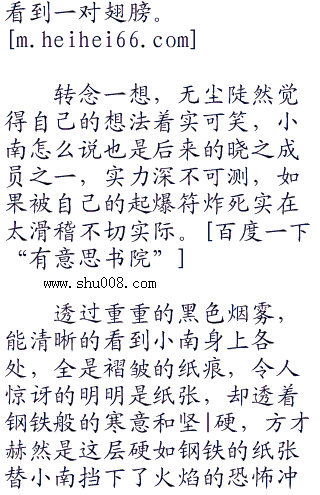 看到一对翅膀。
[m.heihei66.com]
转念一想，无尘陡然觉
得自己的想法着实可笑，小
南怎么说也是后来的晓之成
员之一，实力深不可测，如
果被自己的起爆符炸死实在
太滑稽不切实际。[百度一下
“有意思书院”]
www.shu008.com
透过重重的黑色烟雾，
能清晰的看到小南身上各
处，全是褶皱的纸痕，令人
惊讶的明明是纸张，却透着
钢铁般的寒意和坚|硬，方才
赫然是这层硬如钢铁的纸张
替小南挡下了火焰的恐怖冲